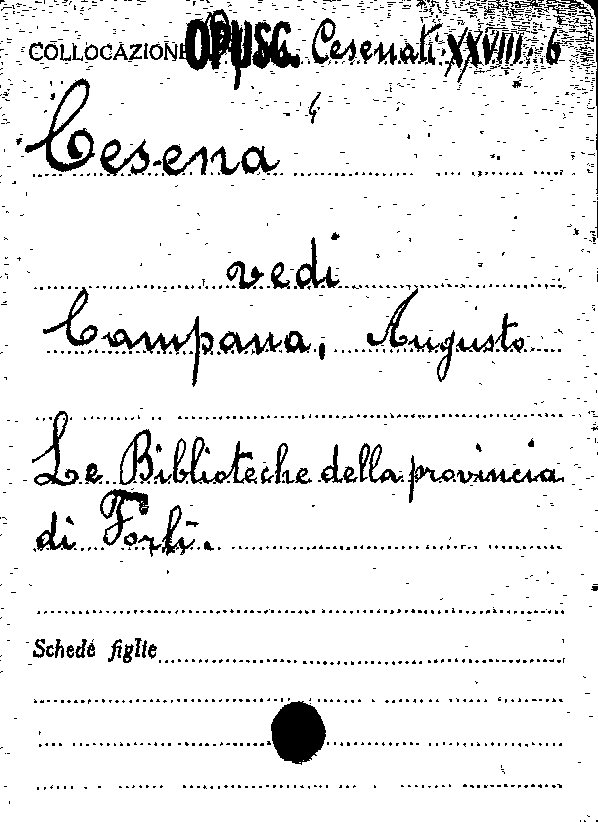 COLLOCAZIONE OPUSC. Cesenati XXVIII 6
Cesena
vedi
Campana, Augusto
Le Biblioteche della provincia
di Forlì.
Schede figlie